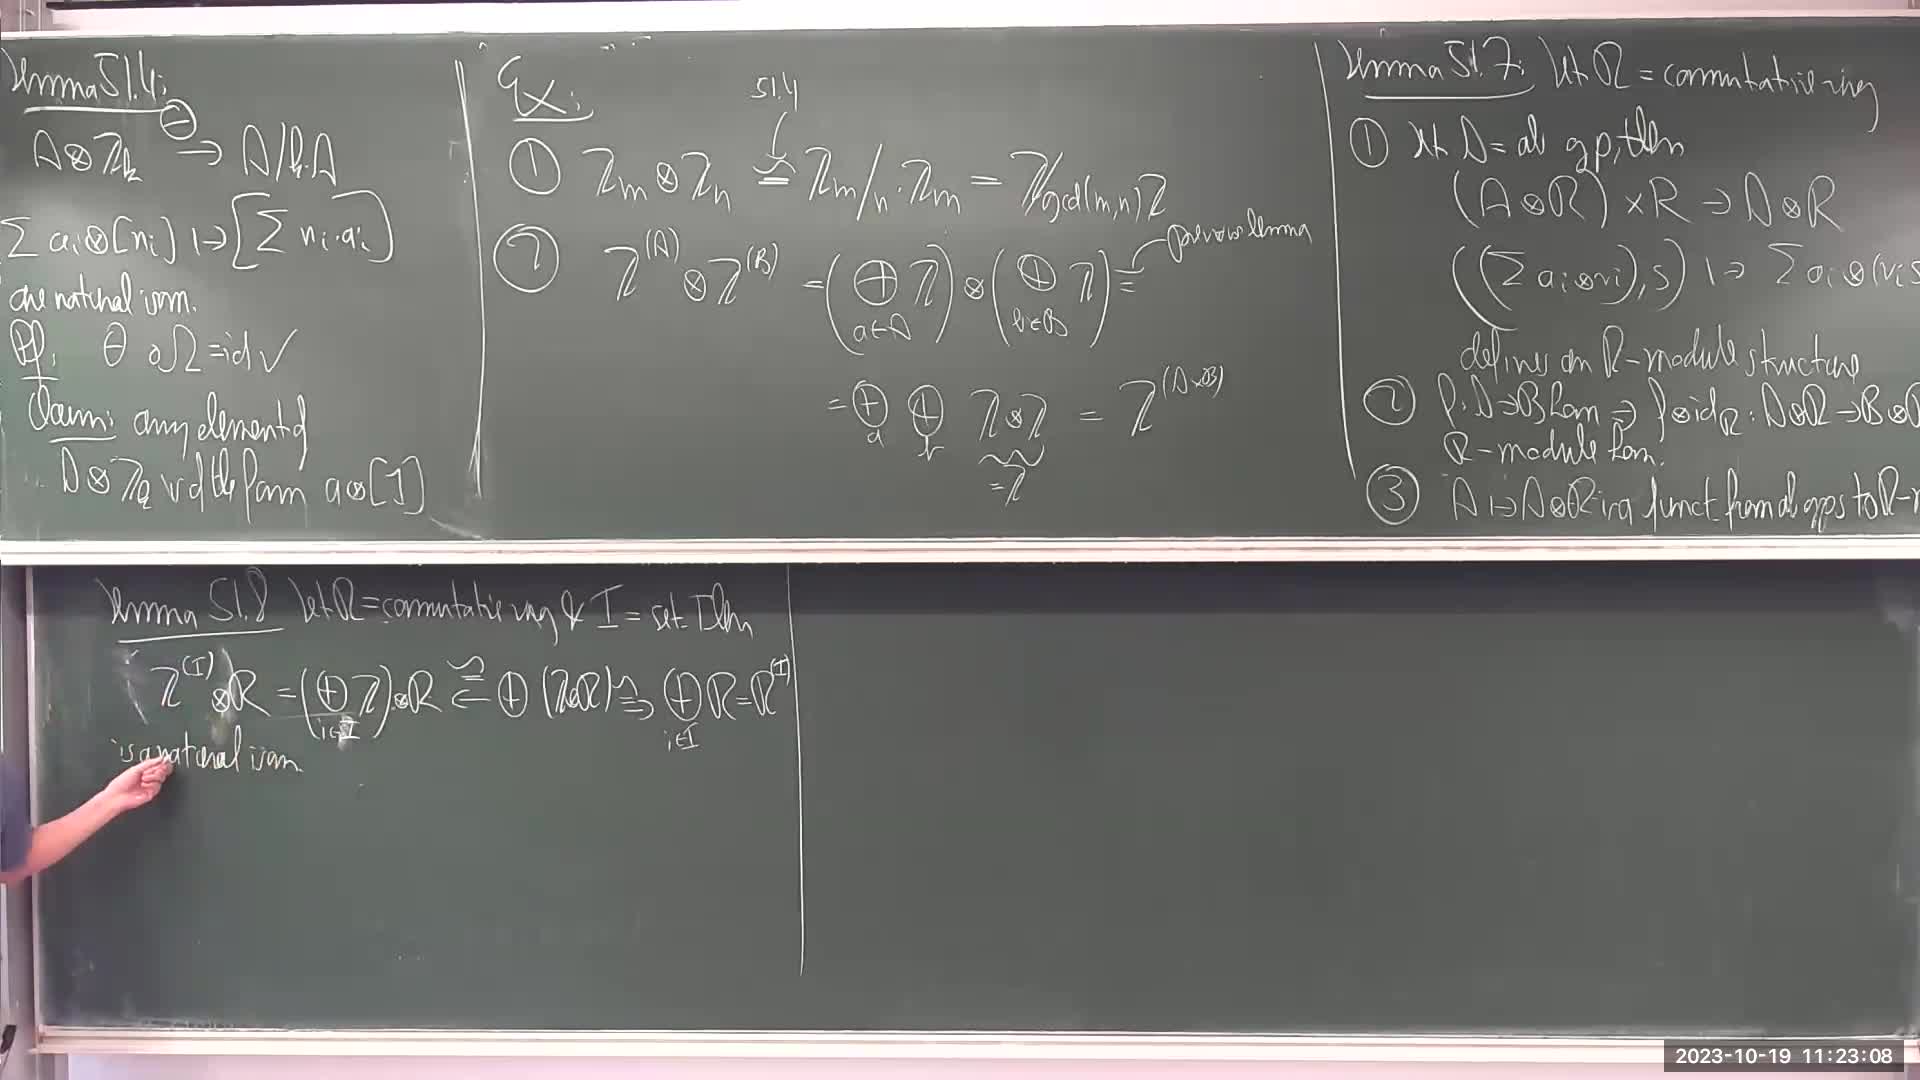 Lemma 51.4:
Θ
A⊗ℤ_k → A/k·A
∑ a_i⊗[n_i] ↦ [∑ n_i·a_i]
are natural isom.
Pf: Θ∘Ω=id ✓
Claim: any element of
A⊗ℤ_k is of the form a⊗[1]
Ex:
51.4
① ℤ_m⊗ℤ_n ≅ ℤ_m/n·ℤ_m = ℤ/gcd(m,n)ℤ
previous lemma
② ℤ^(A)⊗ℤ^(B) = (⊕_{a∈A} ℤ)⊗(⊕_{b∈B} ℤ) =
= ⊕_a ⊕_b ℤ⊗ℤ = ℤ^(A×B)
=ℤ
Lemma 51.7: Let R = commutative ring
① Let A = ab gp, then
(A⊗R)×R → A⊗R
((∑ a_i⊗r_i), s) ↦ ∑ a_i⊗(r_i s
defines an R-module structure
② f: A→B hom ⇒ f⊗id_R: A⊗R→B⊗R
R-module hom.
③ A↦A⊗R is a funct. from ab gps to R-
Lemma 51.8 Let R = commutative ring & I = set. Then
ℤ^(I)⊗R = (⊕_{i∈I} ℤ)⊗R ≅← ⊕ (ℤ⊗R) ≅→ ⊕_{i∈I} R = R^(I)
is a natural isom.
2023-10-19 11:23:08